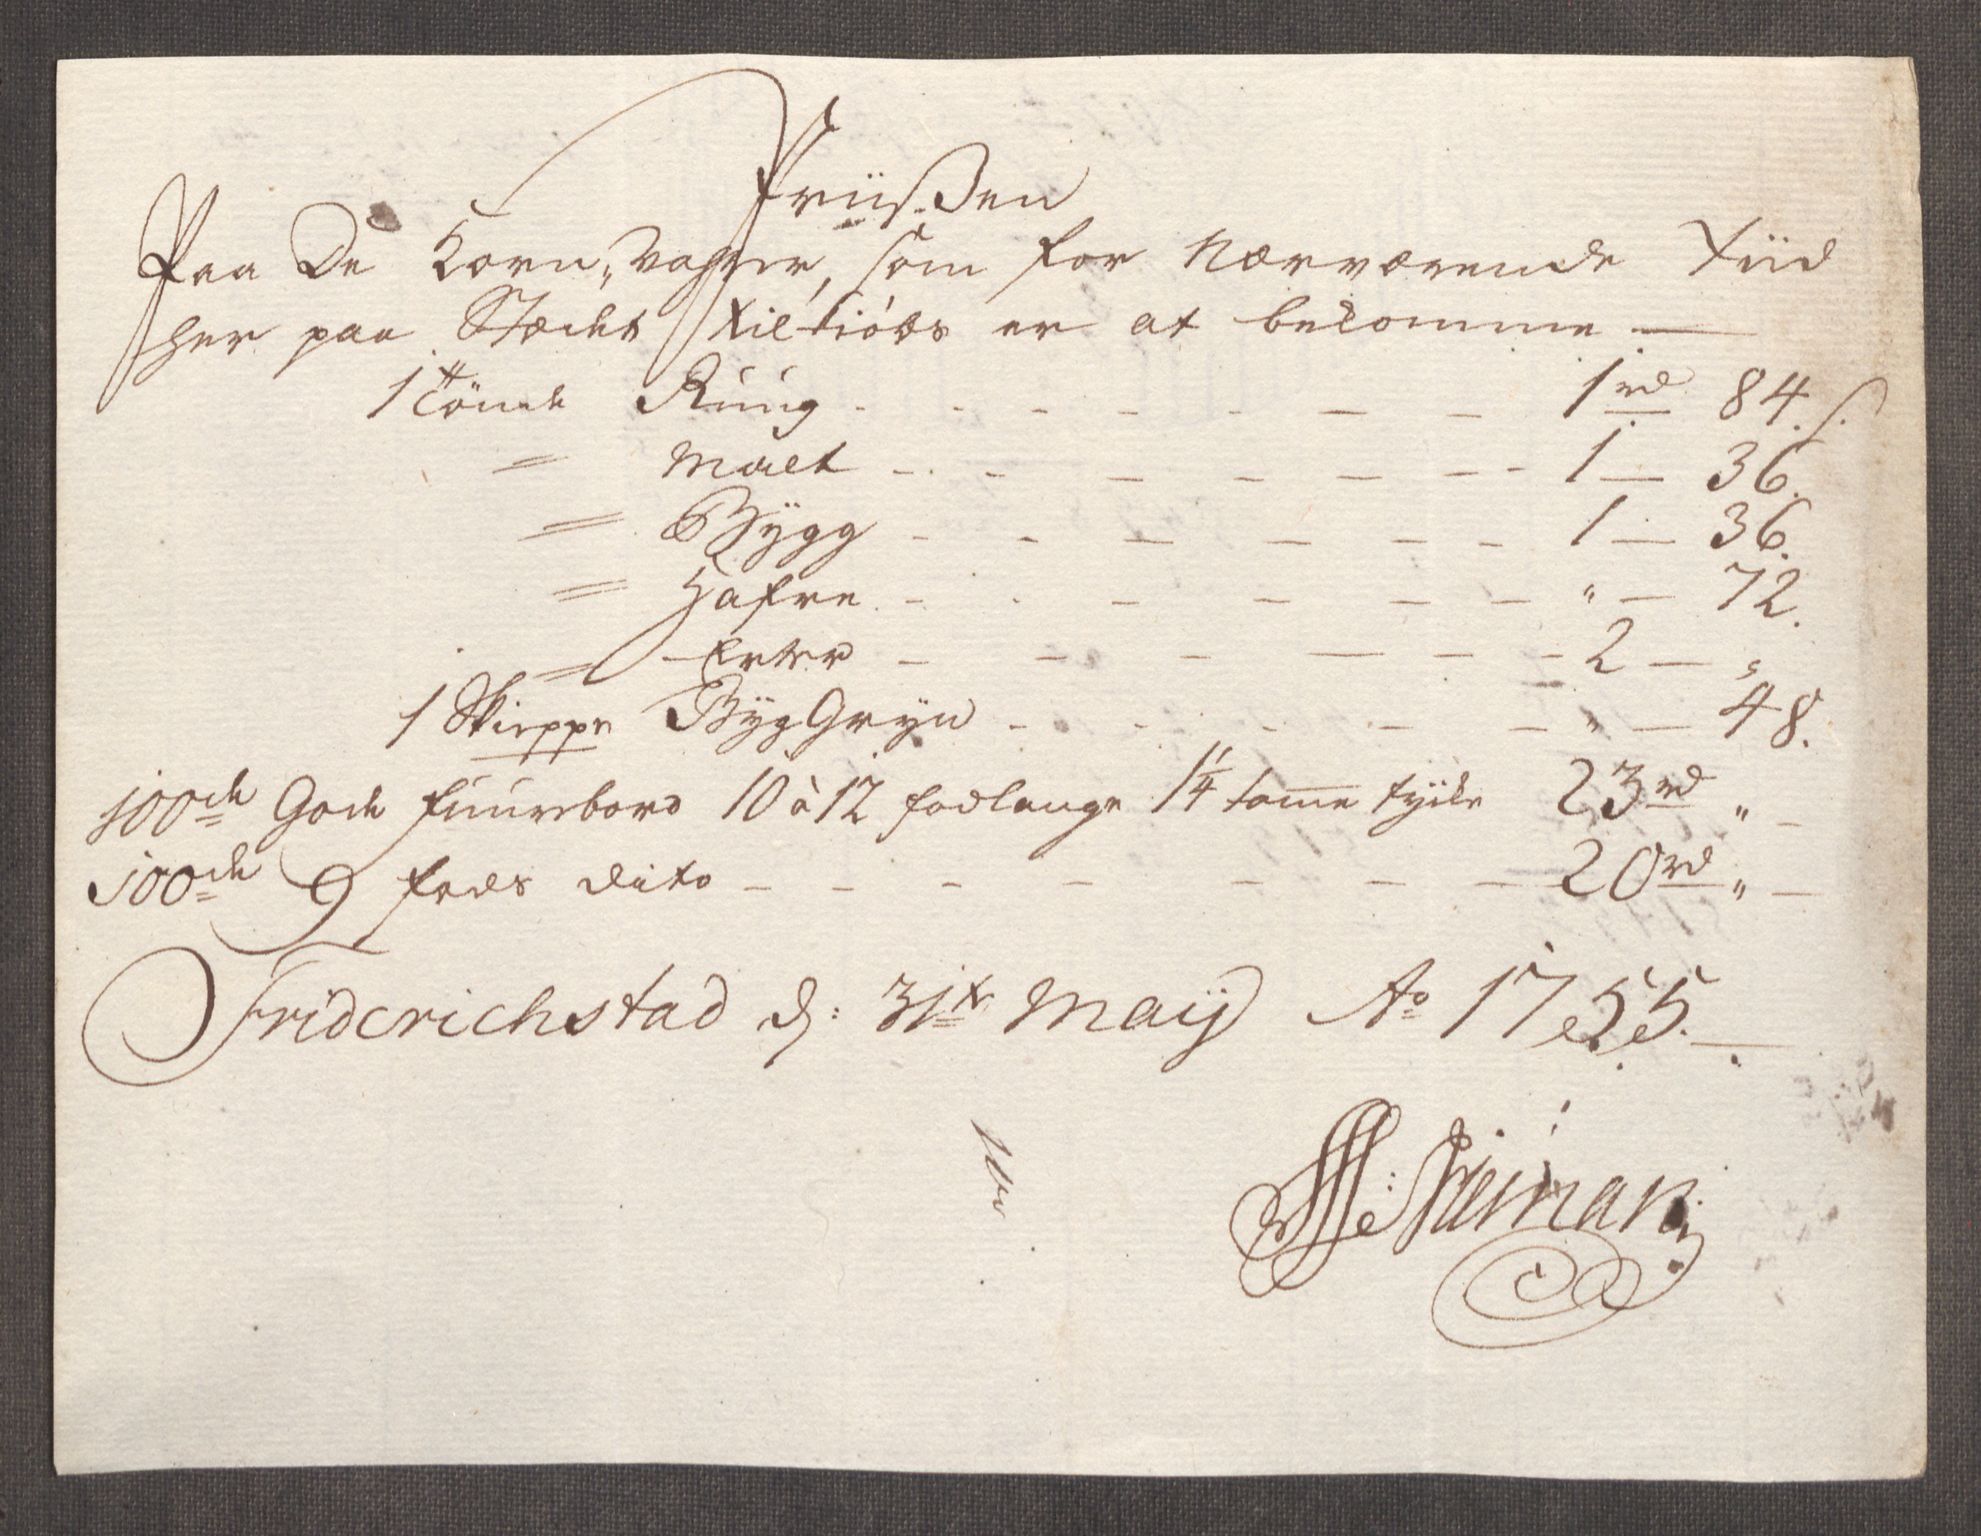 Priißen
Paa De Korn, Vahrer, som for Nærværende Tiid
her paa Stædet til Kiøbs er at bekomme —
1 Tönde Rúúg - - - - - - 1 rd 84 s.
= Malt - - - - - - 1 — 36.
= Bÿgg - - - - - - 1 — 36.
= Hafre - - - - - " — 72.
= Erter - - - - - - 2 — "
1 Skieppe Bÿg Grÿn - - - - - " — 48.
100de Gode Fúúrebord 10 à 12 fod lange 1¼ tomme tÿcke 23 rd " —
100de 9 fods dito - - - - - - - 20 rd " —
Friderichstad d: 31te Maÿ Ao 1755. —